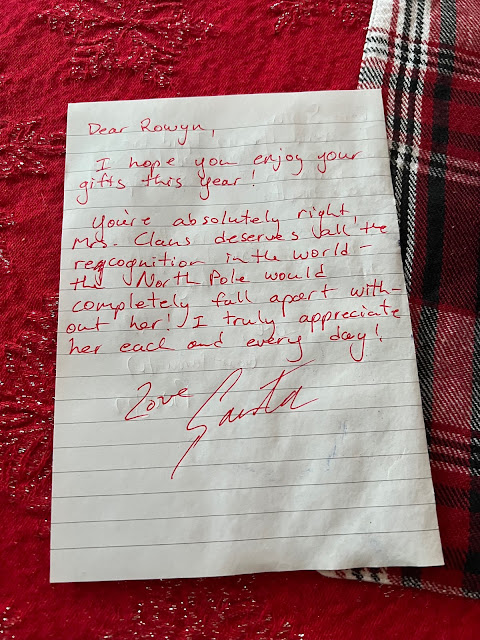 Dear Rowyn,
I hope you enjoy your
gifts this year!
You're absolutely right,
Mrs. Claus deserves all the
recognition in the world -
the North Pole would
completely fall apart with-
out her! I truly appreciate
her each and every day!
Love
Santa